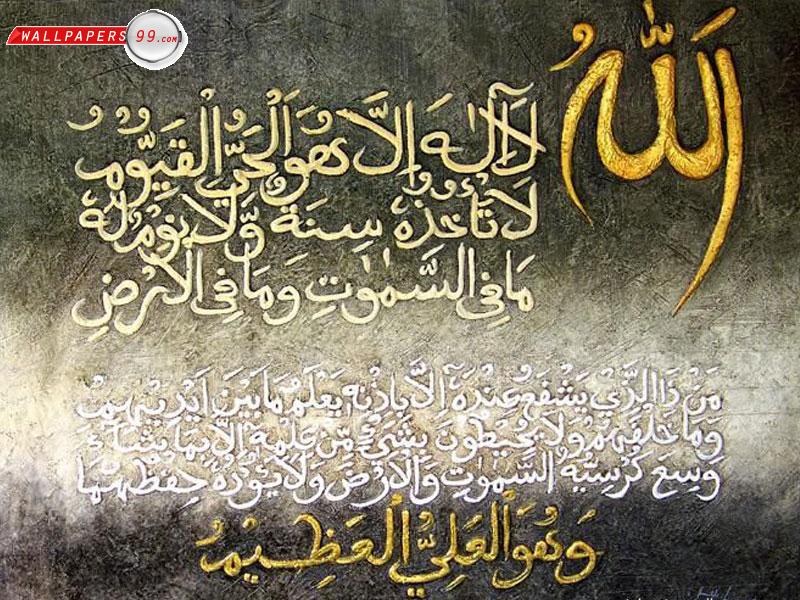 WALLPAPERS 99.com
اللهُ
لَآ اِلٰهَ اِلَّا هُوَ اَلْحَيُّ الْقَيُّومُ
لَا تَأْخُذُهٗ سِنَةٌ وَّلَا نَوْمٌ لَهٗ
مَا فِى السَّمٰوٰتِ وَمَا فِى الْاَرْضِ
مَنْ ذَا الَّذِيْ يَشْفَعُ عِنْدَهٗٓ اِلَّا بِاِذْنِهٖ يَعْلَمُ مَا بَيْنَ اَيْدِيْهِمْ
وَمَا خَلْفَهُمْ وَلَا يُحِيْطُوْنَ بِشَيْءٍ مِّنْ عِلْمِهٖٓ اِلَّا بِمَا شَآءَ
وَسِعَ كُرْسِيُّهُ السَّمٰوٰتِ وَالْاَرْضَ وَلَا يَؤُدُهٗ حِفْظُهُمَا
وَهُوَ الْعَلِيُّ الْعَظِيْمُ